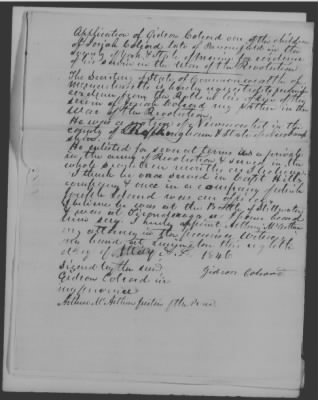 Application of Gideon Colcord one of the children
of Josiah Colcord, late of Parsonsfield in the
County of York & State of Maine for evidence
of his service in the War of the Revolution
The Secretary of State of Commonwealth of
Massachusetts is hereby requested to furnish
evidence from the Rolls in his office of the
service of Josiah Colcord my father in the
War of the Revolution.
He was a native of Newmarket in the
County of Rockingham & State of New Hamp
shire
He enlisted for several terms as a private
in the army of Revolution & served in the
whole eighteen months as I believe
I think he once served in Capt
company & once in a company of which
Joseph Colcord was an officer
I believe he was at the Battle of
& was at Ticonderoga as I have heard
him say. I hereby appoint Arthur McArthur
my attorney in the premises. Witness
my hand at Limington this eighth
day of May A.D. 1846
Signed by the said
Gideon Colcord
Gideon Colcord in
my presence
Arthur McArthur Justice of the Peace